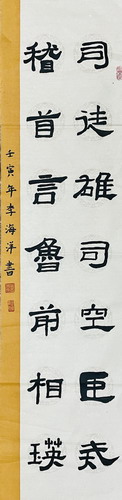 司徒雄司空臣戒
稽首言魯前相瑛
壬寅年李海洋書